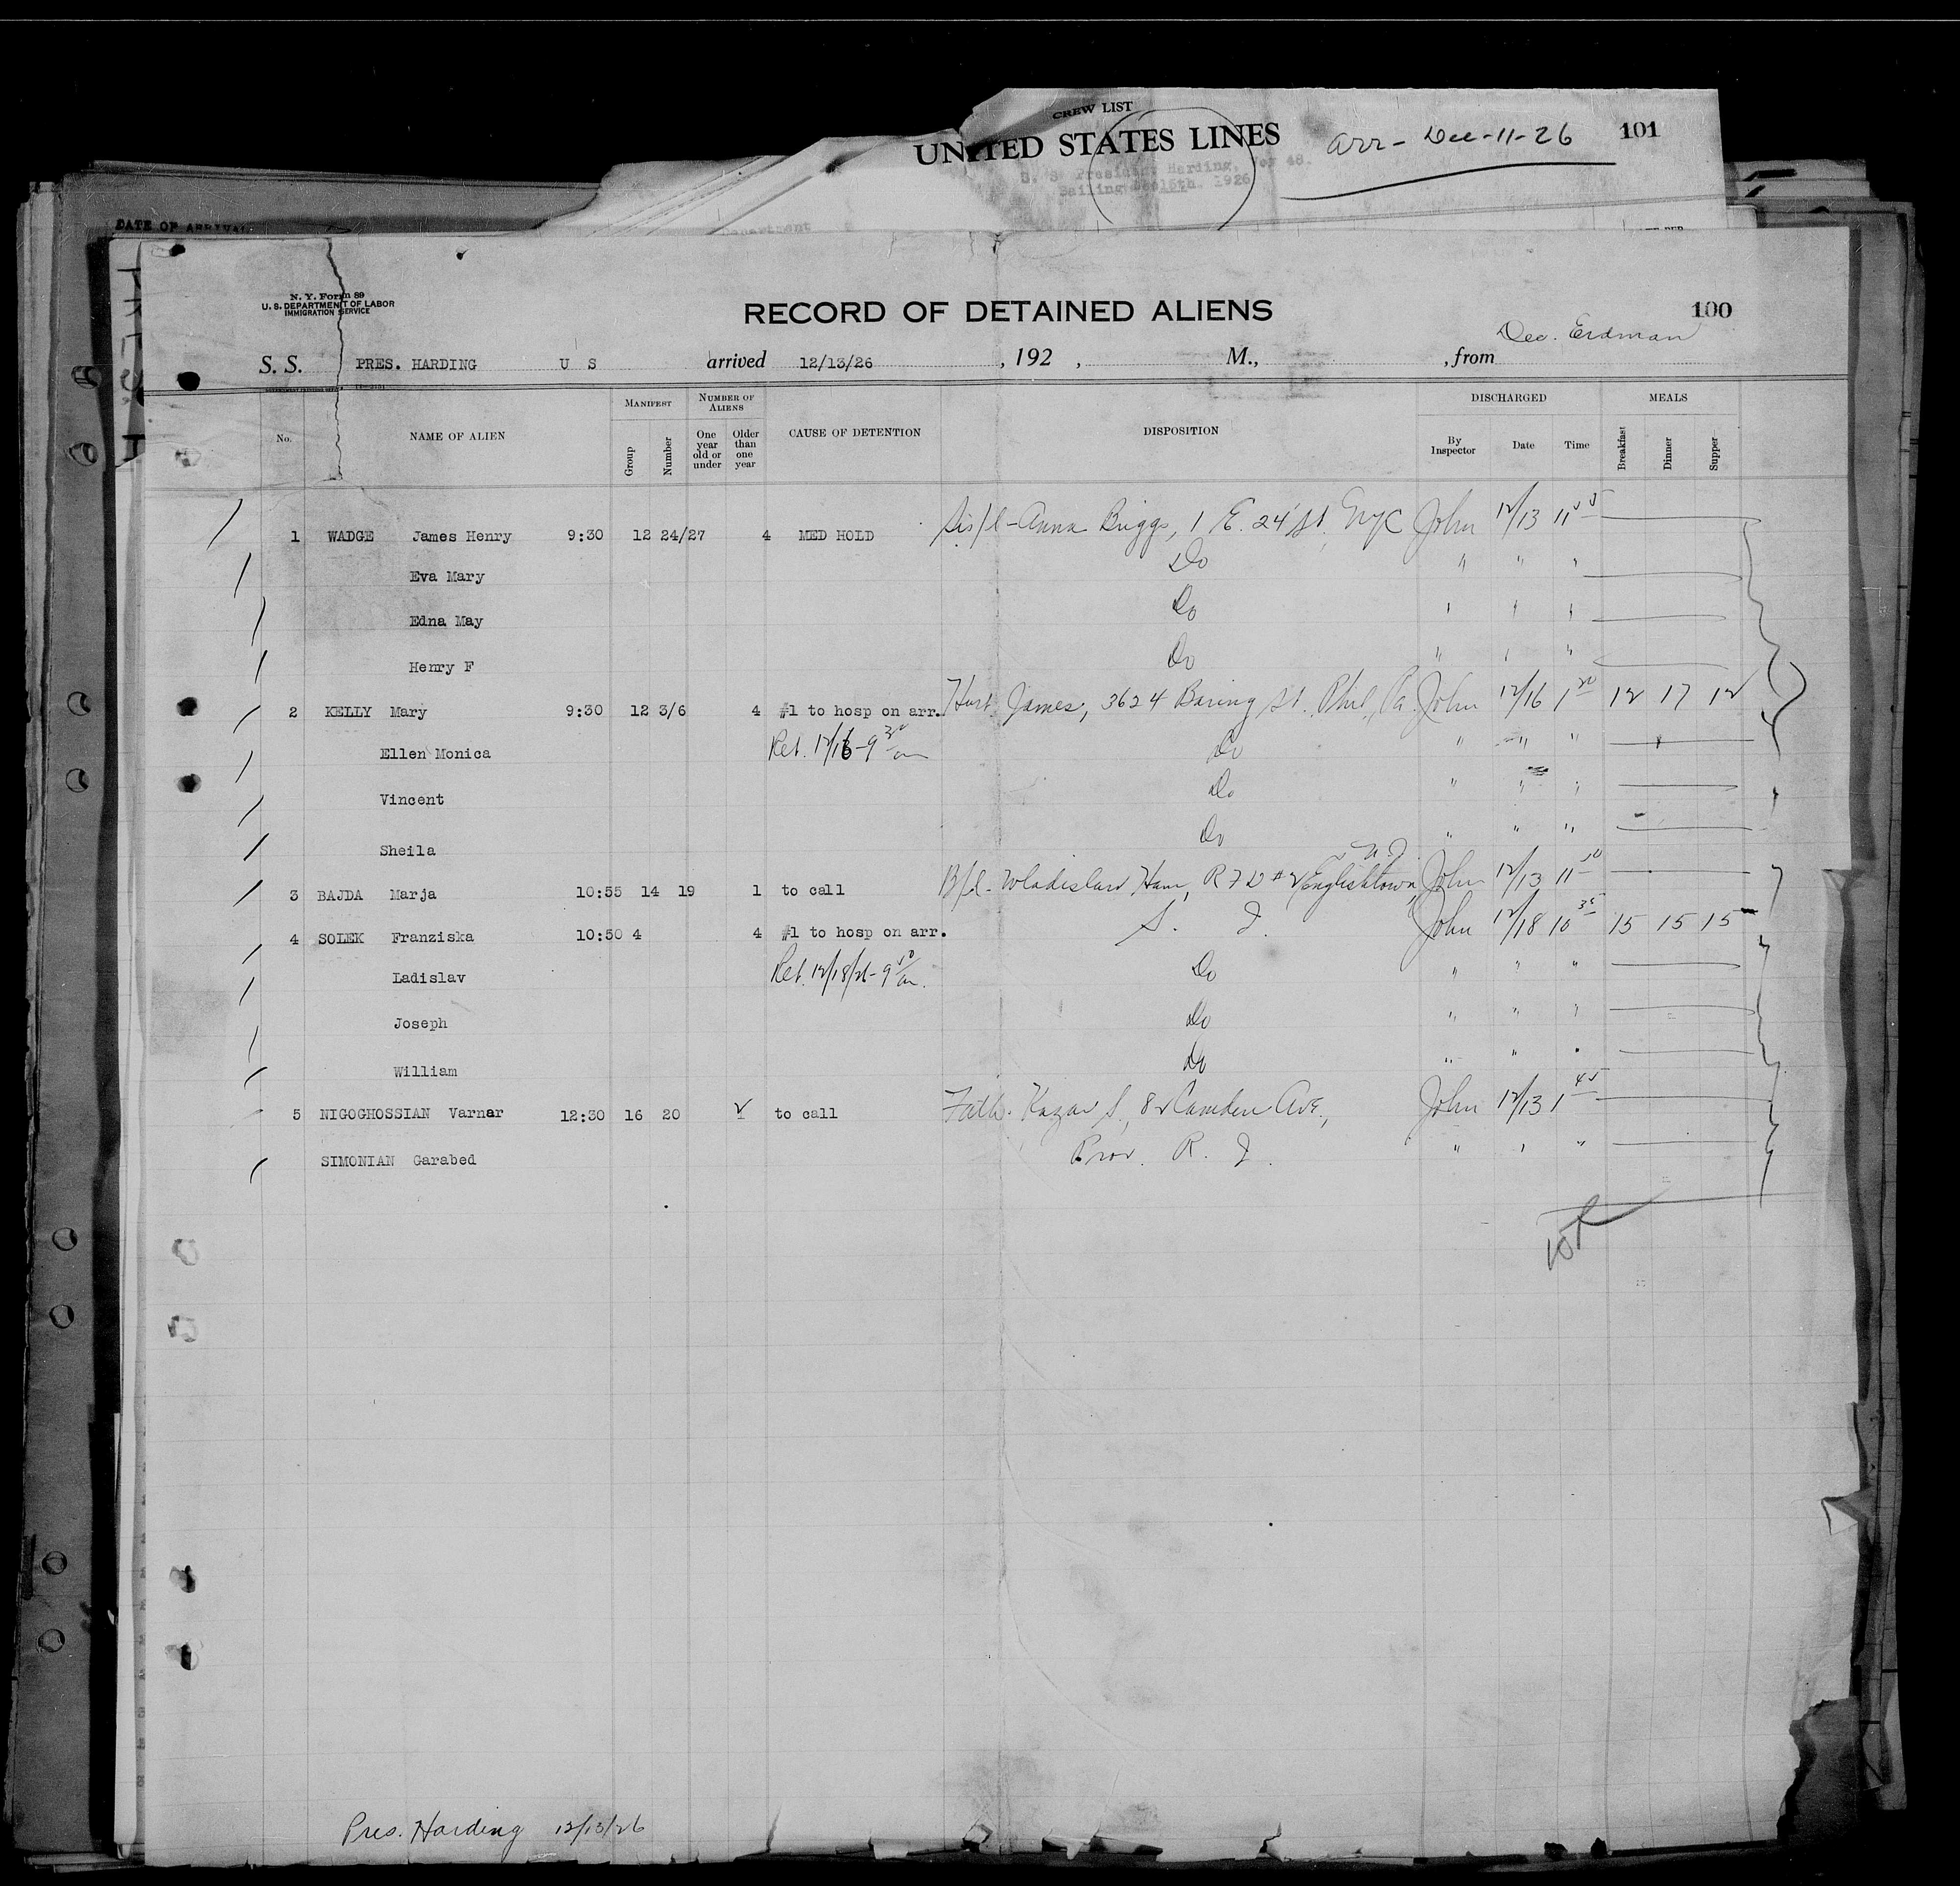 CREW LIST
UNITED STATES LINES arr- Dec-11-26 101
S. S. President Harding,
Sailing 1926
Department
DATE OF ARRIVAL
N. Y. Form 89
U. S. DEPARTMENT OF LABOR
IMMIGRATION SERVICE
RECORD OF DETAINED ALIENS 100
Geo. Erdman
S. S. PRES. HARDING U S arrived 12/13/26 , 192 , M., , from
No. NAME OF ALIEN MANIFEST Group Number NUMBER OF ALIENS One year old or under Older than one year CAUSE OF DETENTION DISPOSITION DISCHARGED By Inspector Date Time MEALS Breakfast Dinner Supper
1 WADGE James Henry 9:30 12 24/27 4 MED HOLD Sis/l - Anna Briggs, 1 E. 24 St NYC John 12/13 11 55
Eva Mary Do " " "
Edna May Do " " "
Henry F Do " " "
2 KELLY Mary 9:30 12 3/6 4 #1 to hosp on arr. Husb James, 3624 Baring St. Phil, Pa. John 12/16 1 20 12 17 12
Ellen Monica Ret. 12/16 - 9 30 am Do " " "
Vincent Do " " "
Sheila Do " " "
N. J.
3 BAJDA Marja 10:55 14 19 1 to call B/l. Wladislaw Ham, R F D # 2 Englishtown, John 12/13 11 50
4 SOLEK Franziska 10:50 4 4 #1 to hosp on arr. S. I. John 12/18 10 35 15 15 15
Ladislav Ret. 12/18/26 - 9 50 am. Do " " "
Joseph Do " " "
William Do " " "
5 NIGOGHOSSIAN Varnar 12:30 16 20 2 to call Fath. Kazar S., 82 Camden Ave., John 12/13 1 45
SIMONIAN Garabed Prov. R. I. " " "
Pres. Harding 12/13/26